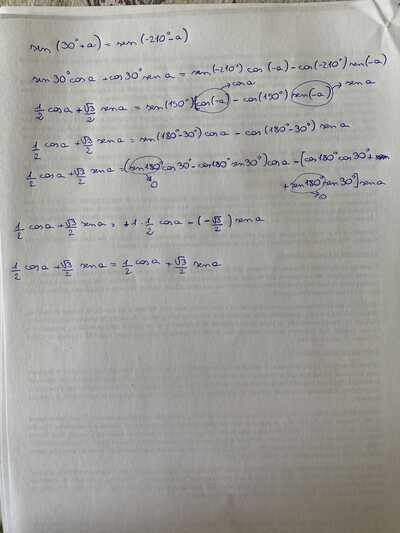 sen (30°+a) = sen(-210°-a)
sen 30° cos a + cos 30° sen a = sen(-210°) cos (-a) - cos(-210°) sen(-a)
cos a
sen a
1/2 cos a + √3/2 sen a = sen(150°) cos(-a) - cos(150°) sen(-a)
1/2 cos a + √3/2 sen a = sen(180°-30°) cos a - cos (180°-30°) sen a
1/2 cos a + √3/2 sen a = (sen 180° cos 30° - cos 180° sen 30°) cos a - [cos 180° cos 30° +
0
+ sen 180° sen 30°] sen a
0
1/2 cos a + √3/2 sen a = +1 · 1/2 cos a - (-√3/2) sen a
1/2 cos a + √3/2 sen a = 1/2 cos a + √3/2 sen a